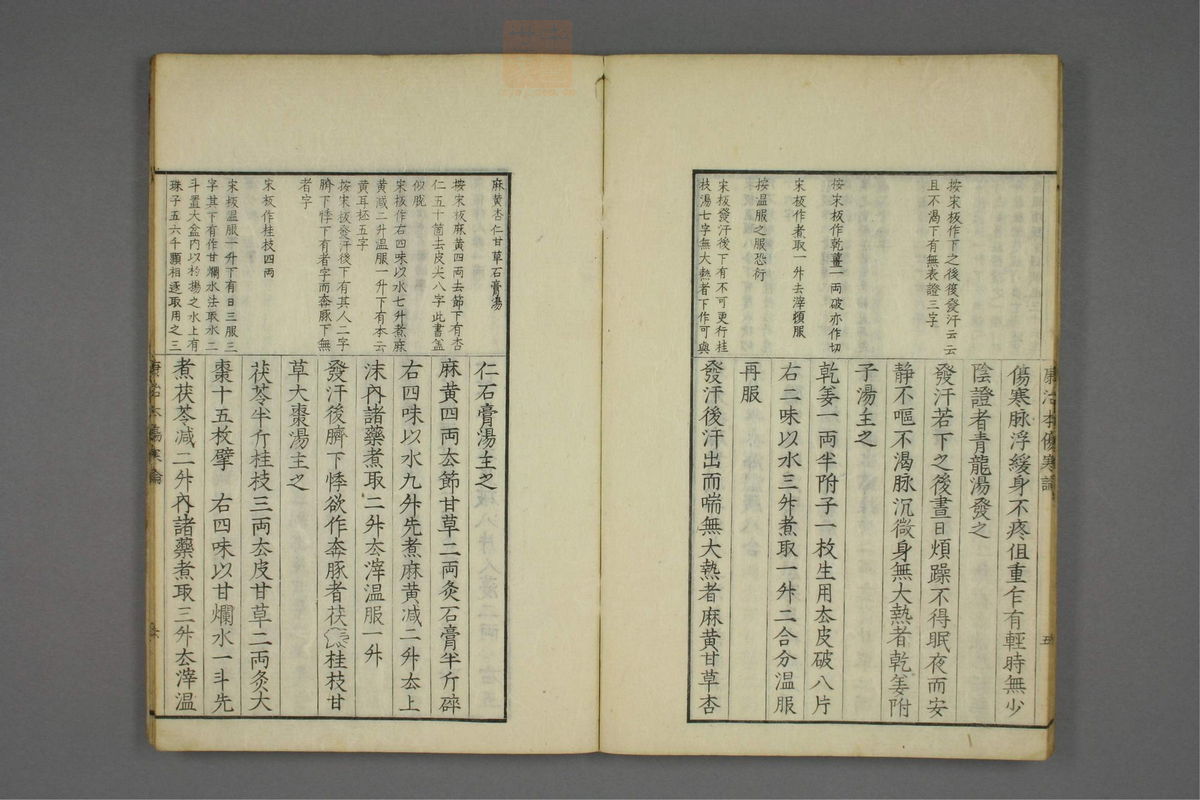 康治本傷寒論
五
傷寒脉浮緩身不疼但重乍有輕時無少
陰證者青龍湯發之
發汗若下之後晝日煩躁不得眠夜而安
静不嘔不渴脉沉微身無大熱者乾姜附
子湯主之
乾姜一両半附子一枚生用厺皮破八片
右二味以水三升煮取一升二合分温服
再服
發汗後汗出而喘無大熱者麻黄甘草杏
按宋板作下之後復發汗云云
且不渴下有無表證三字
按宋板作乾薑一両破亦作切
宋板作煮取一升去滓頓服
按温服之服恐衍
宋板發汗後下有不可更行桂
枝湯七字無大熱者下作可與
麻黄杏仁甘草石膏湯
按宋板麻黄四両去節下有杏
仁五十箇去皮尖八字此書盖
似脱
宋板作右四味以水七升煮麻
黄減二升温服一升下有本云
黄耳柸五字
按宋板發汗後下有其人二字
臍下悸下有者字而奔豚下無
者字
宋板作桂枝四両
宋板温服一升下有日三服三
字其下有作甘爛水法取水二
斗置大盆内以杓揚之水上有
珠子五六千顆相逐取用之三
仁石膏湯主之
麻黄四両厺節甘草二両炙石膏半斤碎
右四味以水九升先煮麻黄减二升厺上
沫內諸藥煮取二升厺滓温服一升
發汗後臍下悸欲作奔豚者茯苓桂枝甘
草大棗湯主之
茯苓半斤桂枝三両厺皮甘草二両炙大
棗十五枚擘 右四味以甘爛水一斗先
煮茯苓减二升內諸藥煮取三升厺滓温
康治本傷寒論